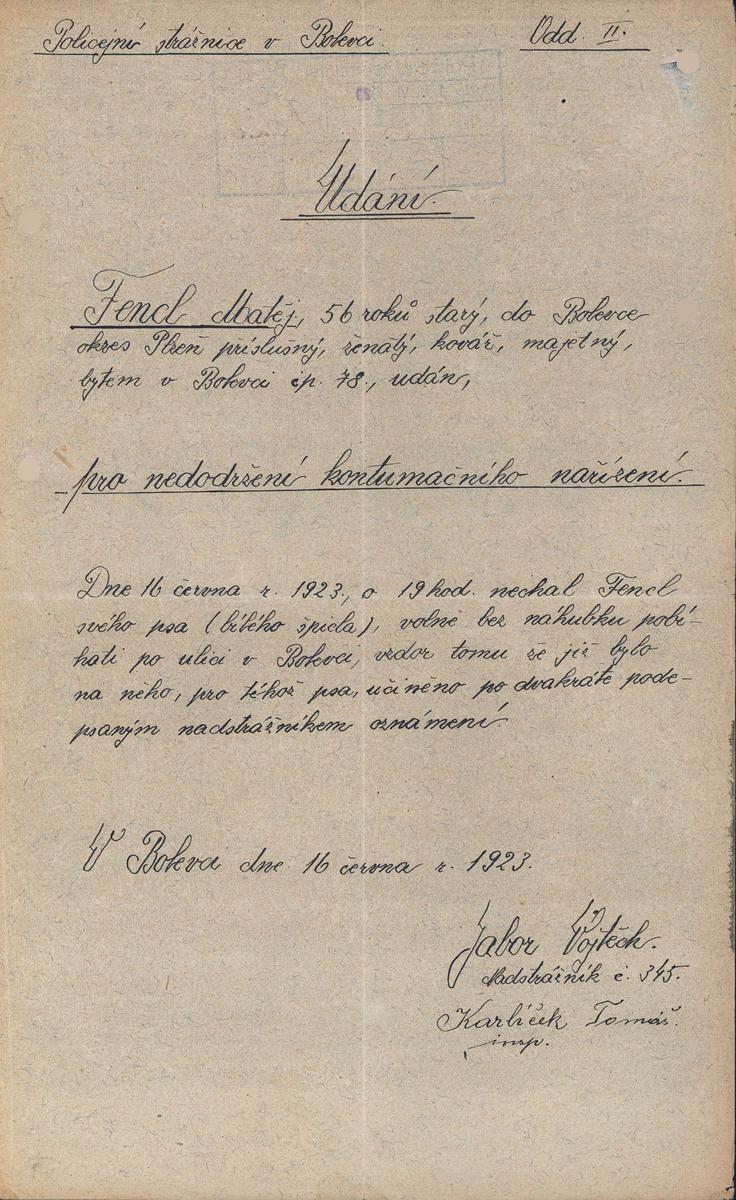 Policejní strážnice v Bolevci.
Odd. II.
Udání.
Fencl Matěj, 56 roků starý, do Bolevce
okres Plzeň příslušný, ženatý, kovář, majetný,
bytem v Bolevci čp. 78., udán,
pro nedodržení kontumačního nařízení.
Dne 16 června r. 1923., o 19 hod. nechal Fencl
svého psa (bílého špicla), volně bez náhubku pobí-
hati po ulici v Bolevci, vzdor tomu že již bylo
na něho, pro téhož psa, učiněno po dvakráte pode-
psaným nadstrážníkem oznámení.
V Bolevci dne 16 června r. 1923.
Jabor Vojtěch.
Nadstrážník č. 345.
Karlíček Tomáš.
insp.